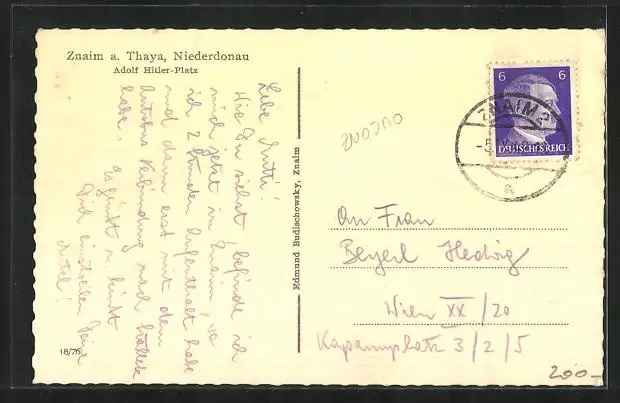 Znaim a. Thaya, Niederdonau
Adolf Hitler-Platz
Liebe Mutti!
Wie Du siehst befinde ich
mich jetzt in Znaim, wo
ich 2 Stunden Aufenthalt habe
und dann erst mit dem
Autobus Verbindung nach
habe. Es grüßt u. küßt
Dich Deine
18/76
Edmund Budischowsky, Znaim
6 6
ZNAIM 2
DEUTSCHES REICH
a
An Frau
Beyerl Hedwig
Wien XX/20
3/2/5
200-